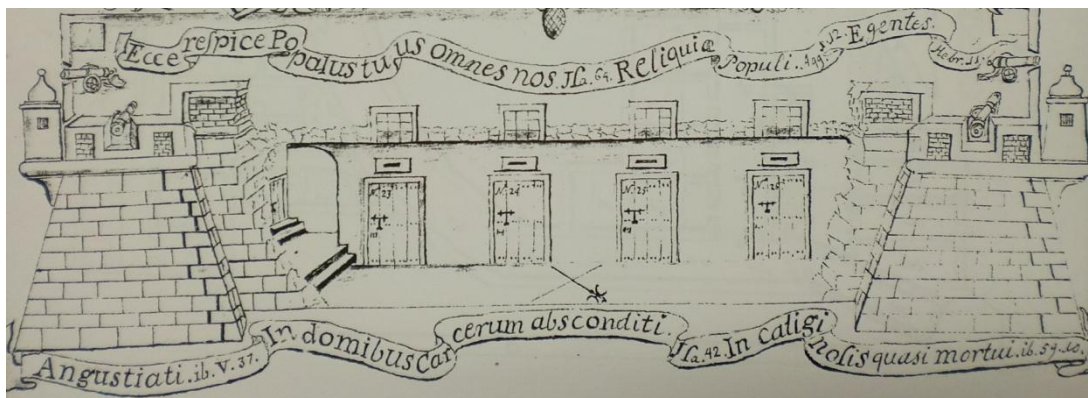 Ecce respice Po palus tu us omnes nos. Isa. 64. Reliquiæ Populi. Agg. 1.12. Egentes. Hebr. 11.
N. 23 N. 24 N. 25 N. 26
Angustiati. ib. V. 37. In domibus car cerum absconditi. Isa. 42. In caligi nosis quasi mortui. ib. 59. 10.